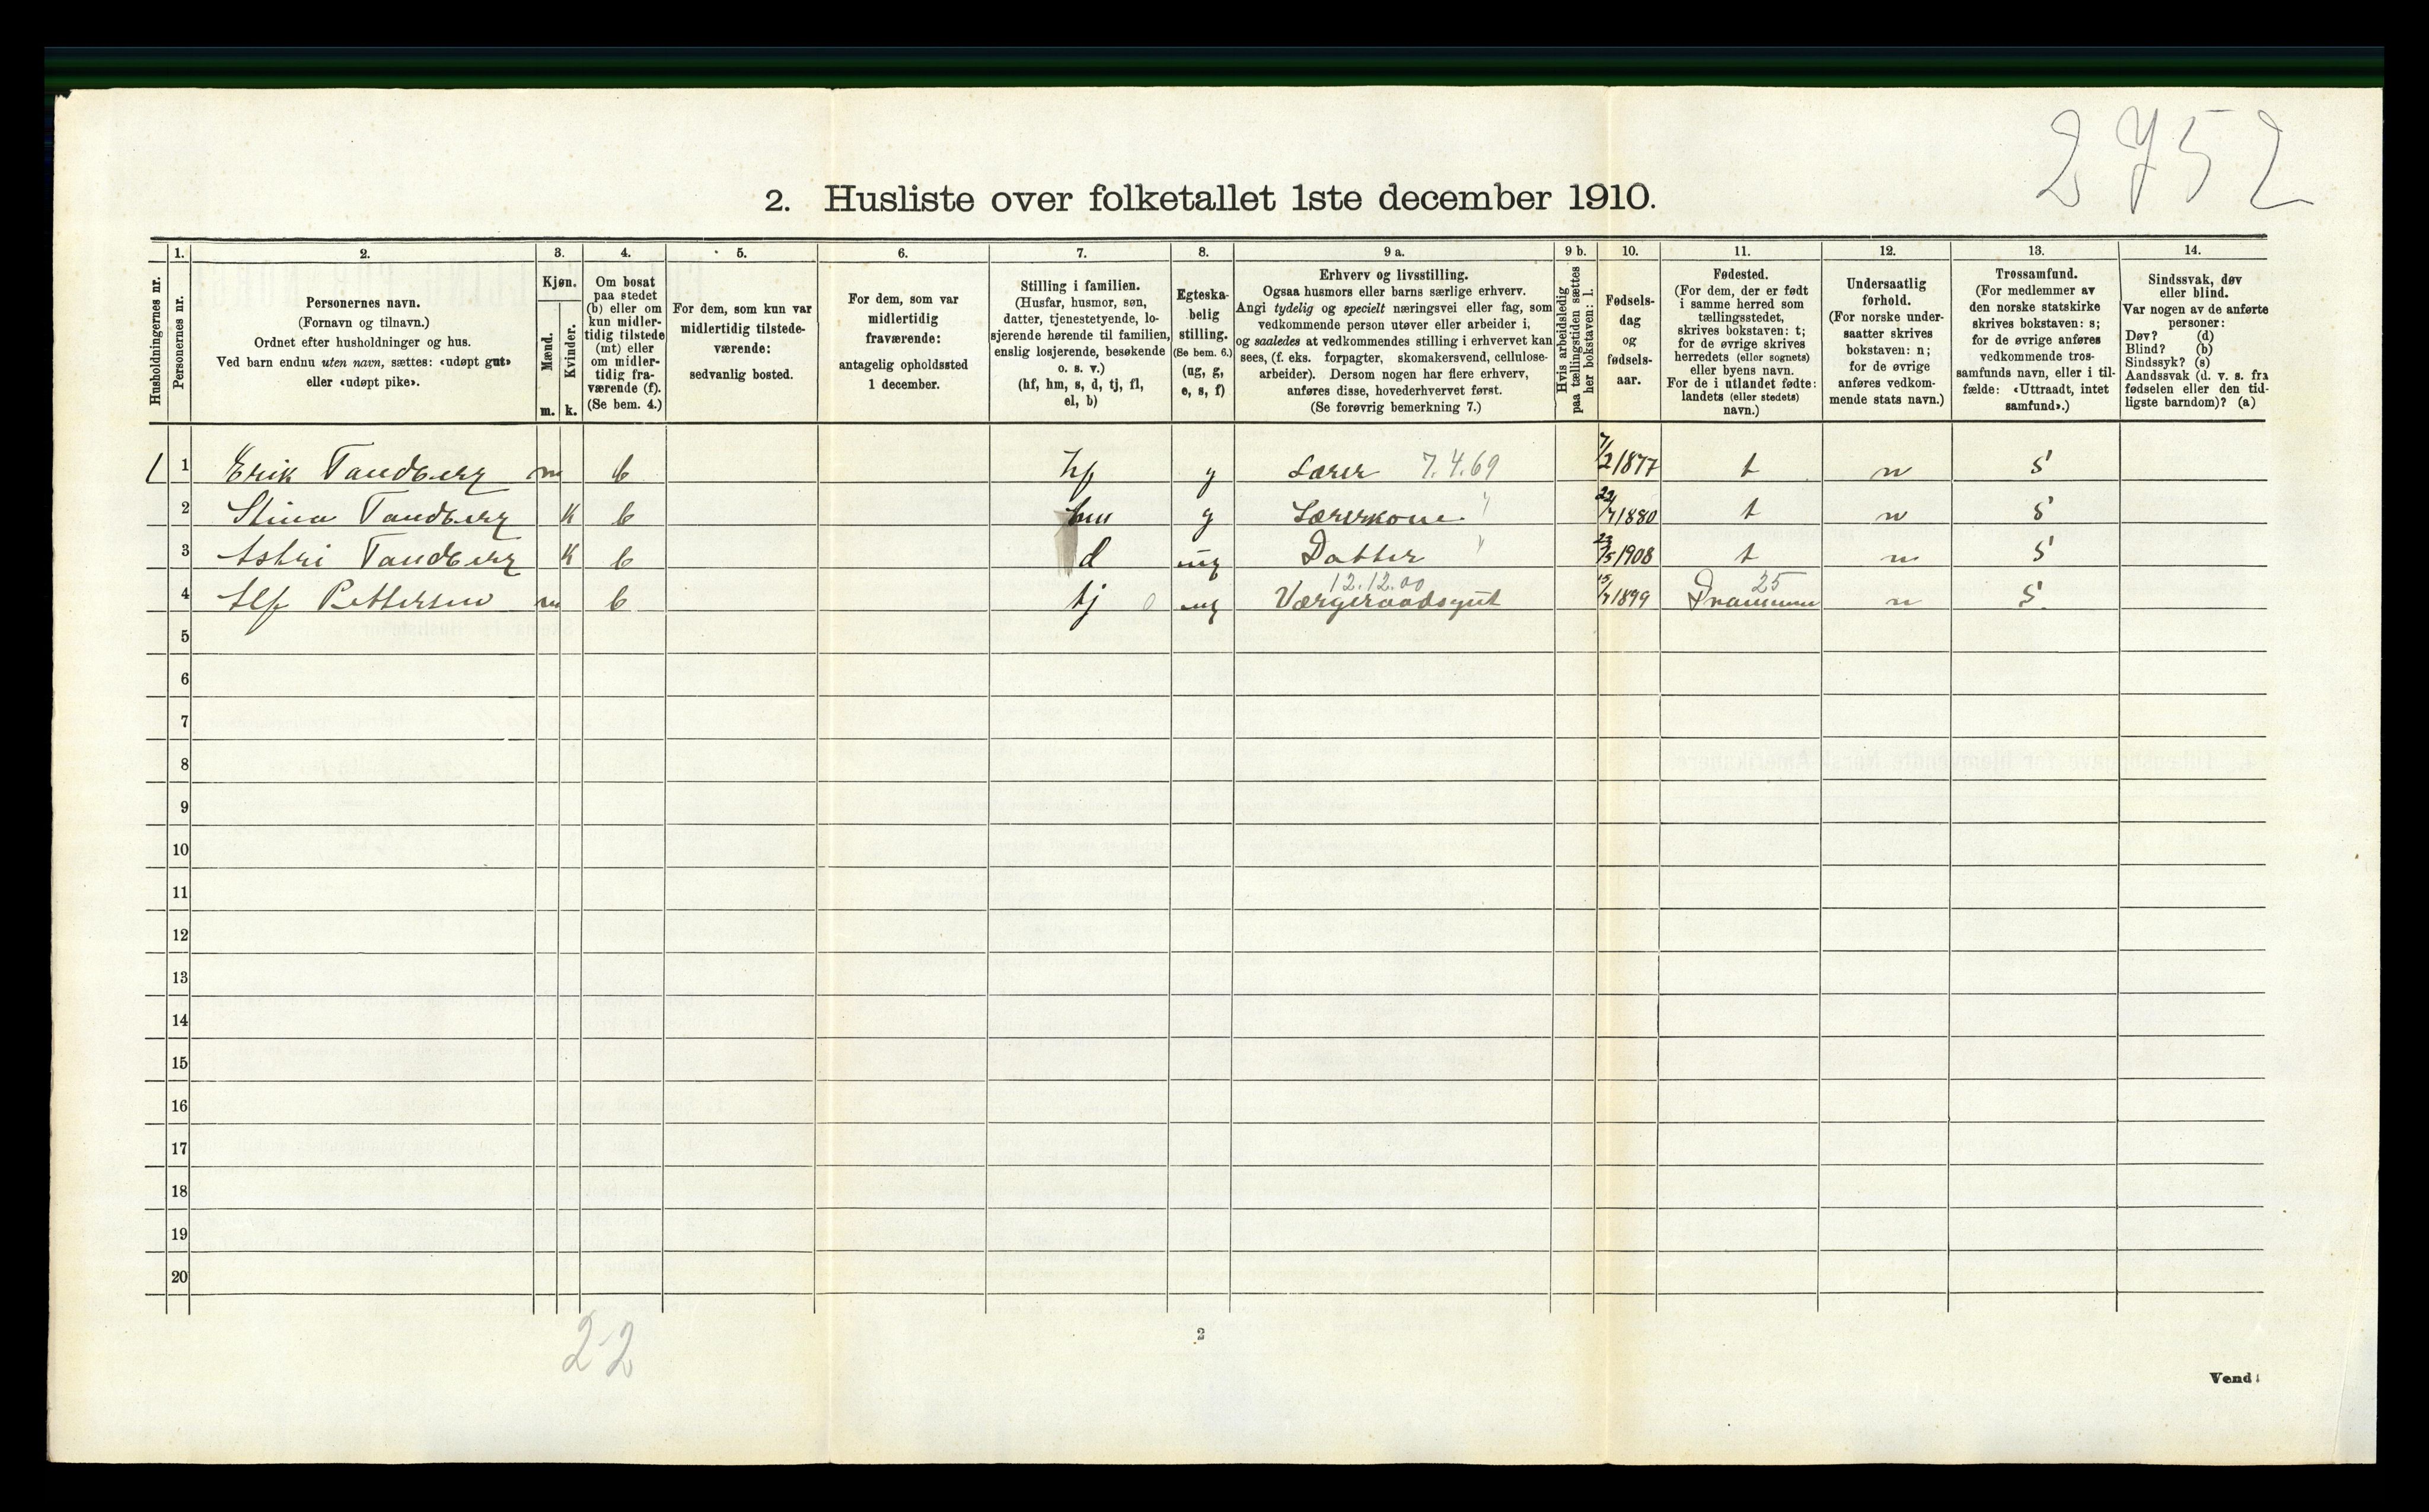 2752
2. Husliste over folketallet 1ste december 1910.
Husholdningernes nr.
1.
Personernes nr.
2.
Personernes navn.
(Fornavn og tilnavn.)
Ordnet efter husholdninger og hus.
Ved barn endnu uten navn, sættes: «udøpt gut»
eller «udøpt pike».
3.
Kjøn.
Mænd.
Kvinder.
m. k.
4.
Om bosat
paa stedet
(b) eller om
kun midler-
tidig tilstede
(mt) eller
om midler-
tidig fra-
værende (f).
(Se bem. 4.)
5.
For dem, som kun var
midlertidig tilstede-
værende:
sedvanlig bosted.
6.
For dem, som var
midlertidig
fraværende:
antagelig opholdssted
1 december.
7.
Stilling i familien.
(Husfar, husmor, søn,
datter, tjenestetyende, lo-
sjerende hørende til familien,
enslig losjerende, besøkende
o. s. v.)
(hf, hm, s, d, tj, fl,
el, b)
8.
Egteska-
belig
stilling.
(Se bem. 6.)
(ug, g,
e, s, f)
9 a.
Erhverv og livsstilling.
Ogsaa husmors eller barns særlige erhverv.
Angi tydelig og specielt næringsvei eller fag, som
vedkommende person utøver eller arbeider i,
og saaledes at vedkommendes stilling i erhvervet kan
sees, (f. eks. forpagter, skomakersvend, cellulose-
arbeider). Dersom nogen har flere erhverv,
anføres disse, hovederhvervet først.
(Se forøvrig bemerkning 7.)
9 b.
Hvis arbeidsledig
paa tællingstiden sættes
her bokstaven: l.
10.
Fødsels-
dag
og
fødsels-
aar.
11.
Fødested.
(For dem, der er født
i samme herred som
tællingsstedet,
skrives bokstaven: t;
for de øvrige skrives
herredets (eller sognets)
eller byens navn.
For de i utlandet fødte:
landets (eller stedets)
navn.)
12.
Undersaatlig
forhold.
(For norske under-
saatter skrives
bokstaven: n;
for de øvrige
anføres vedkom-
mende stats navn.)
13.
Trossamfund.
(For medlemmer av
den norske statskirke
skrives bokstaven: s;
for de øvrige anføres
vedkommende tros-
samfunds navn, eller i til-
fælde: «Uttraadt, intet
samfund».)
14.
Sindssvak, døv
eller blind.
Var nogen av de anførte
personer:
Døv? (d)
Blind? (b)
Sindssyk? (s)
Aandssvak (d. v. s. fra
fødselen eller den tid-
ligste barndom)? (a)
1 1 Erik Tandberg m b hf g Lærer 7.4.69 7/2 1877 t n s
2 Stina Tandberg k b hm g Lærerkone " 22/7 1880 t n s
3 Astri Tandberg k b d ug Datter " 23/5 1908 t n s
12.12.00 25
4 Alf Pettersen m b tj 0 ug Værgeraadsgut 15/7 1899 Drammen n s
5
6
7
8
9
10
11
12
13
14
15
16
17
18
19
20
22
2
Vend!